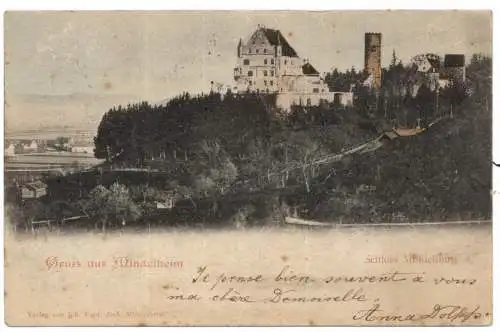 Gruss aus Mindelheim
Schloss Mindelburg
Je pense bien souvent à vous
ma chère Demoiselle,
Anna Dolpp.
Verlag von Joh.